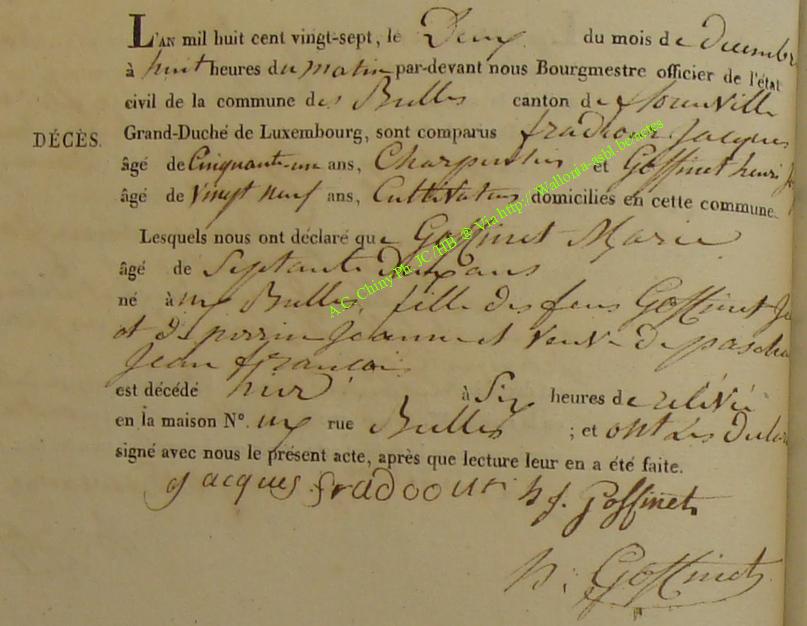 L'AN mil huit cent vingt-sept, le Deux du mois de decembre
à huit heures du matin par-devant nous Bourgmestre officier de l'état
civil de la commune des Bulles canton de florenville
DÉCÈS.
Grand-Duché de Luxembourg, sont comparus fradcourt Jacques
âgé de Cinquante-un ans, Charpentier et Goffinet henri
âgé de vingt neuf ans, Cultivateur domiciliés en cette commune.
Lesquels nous ont déclaré que Goffinet Marie
âgé de Septante Deux ans
né à Bulles, fille des feus Goffinet
et de perrin Jeanne et veuve de
Jean françois
est décédé hier à Six heures de relévé
en la maison N°. rue Bulles ; et ont Les
signé avec nous le présent acte, après que lecture leur en a été faite.
Jacques h j. Goffinet
h: Goffinet
A.C. Chiny Ph. JC/HB ® Via http://Wallonia-asbl.be/actes